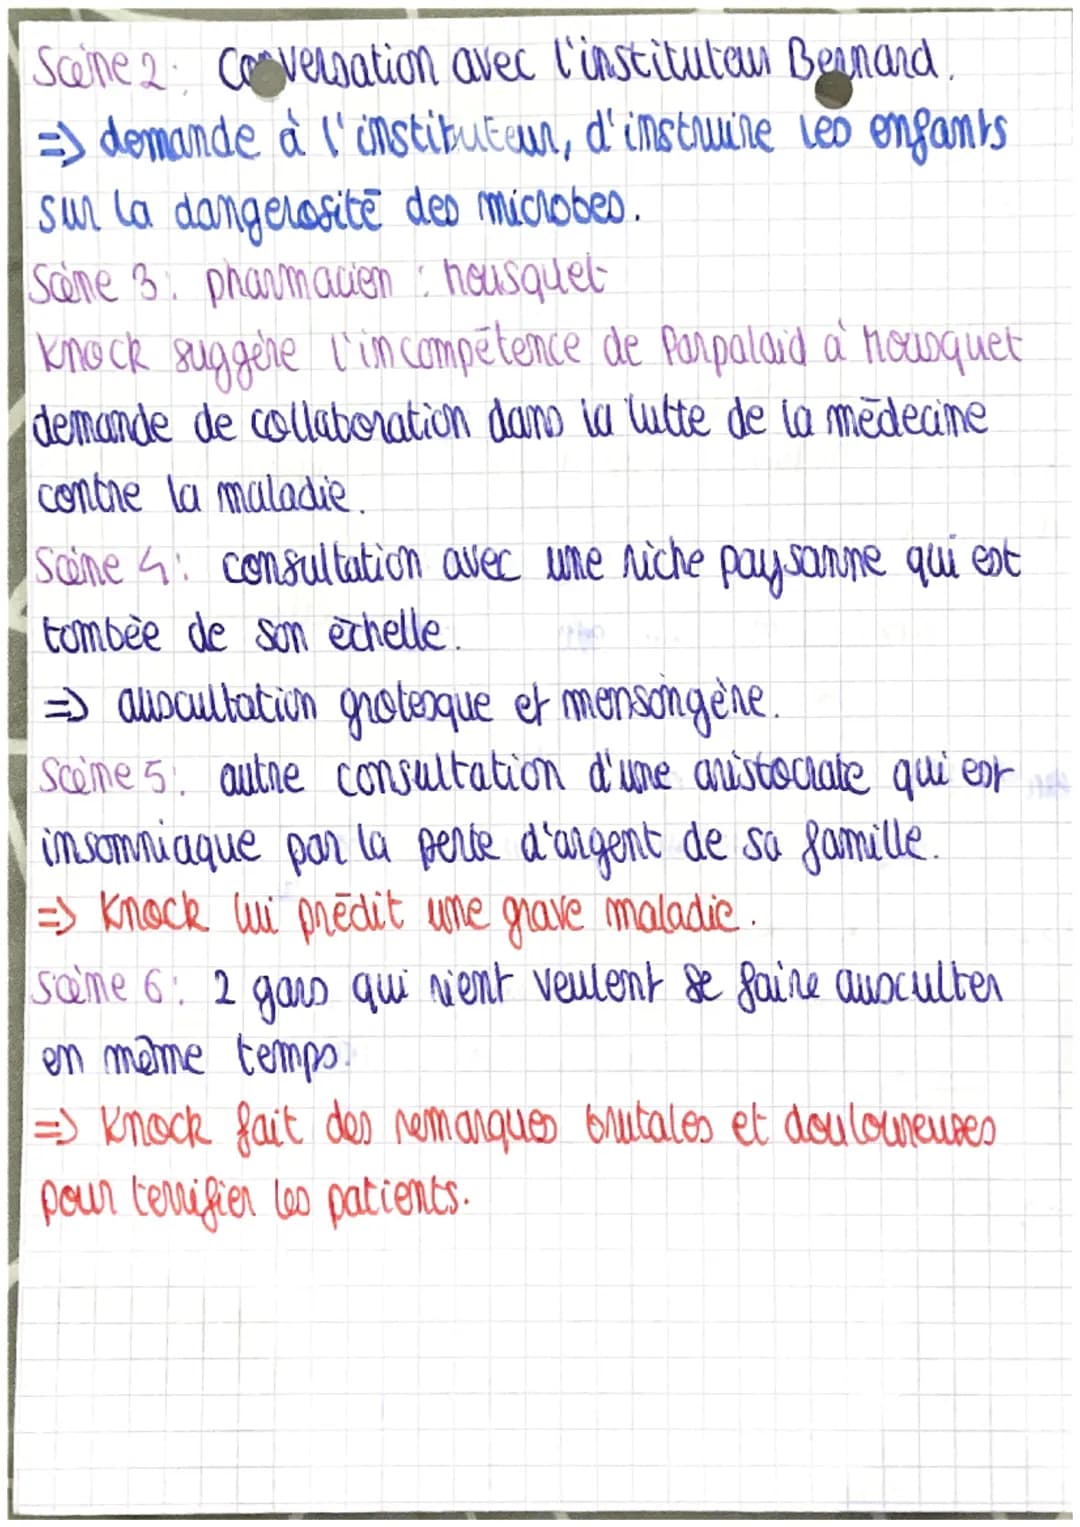 Scène 2 : Conversation avec l'instituteur Bernard.
=> demande à l'instituteur, d'instruire les enfants
sur la dangerosité des microbes.
Scène 3 : pharmacien : Mousquet
Knock suggère l'incompétence de Parpalaid à Mousquet
demande de collaboration dans la lutte de la médecine
contre la maladie.
Scène 4 : consultation avec une riche paysanne qui est
tombée de son échelle.
=> auscultation grotesque et mensongère.
Scène 5 : autre consultation d'une aristocrate qui est
insomniaque par la perte d'argent de sa famille.
=> Knock lui prédit une grave maladie.
Scène 6 : 2 gars qui rient veulent se faire ausculter
en même temps.
=> Knock fait des remarques brutales et douloureuses
pour terrifier les patients.